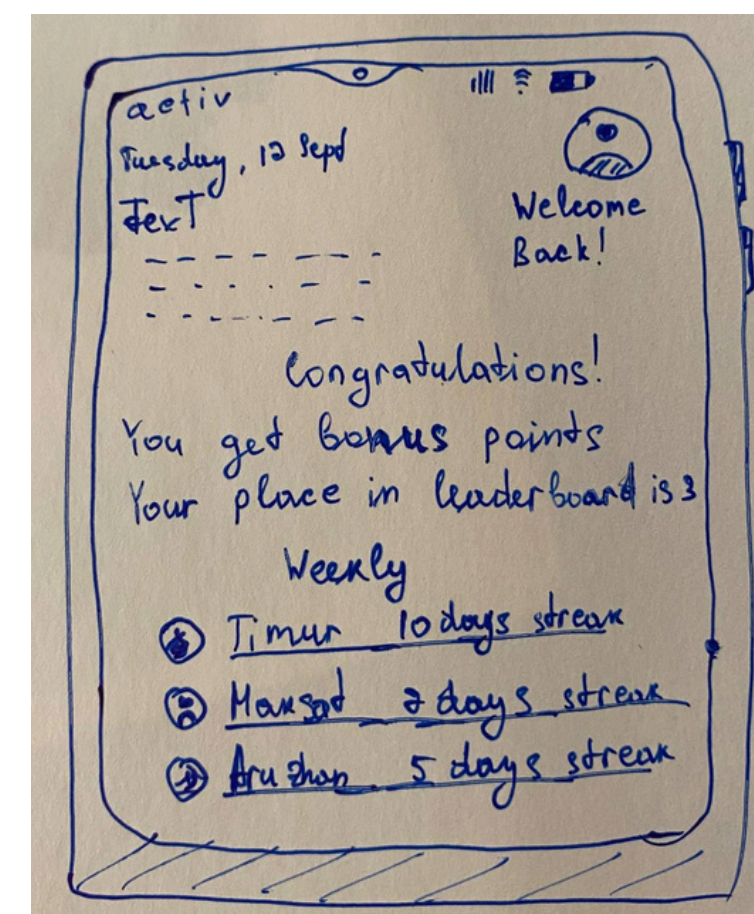 activ
Tuesday, 12 Sept
Text
Welcome
Back!
Congratulations!
You get bonus points
Your place in leaderboard is 3
Weekly
Timur 10 days streak
Maksat days streak
Aruzhan 5 days streak